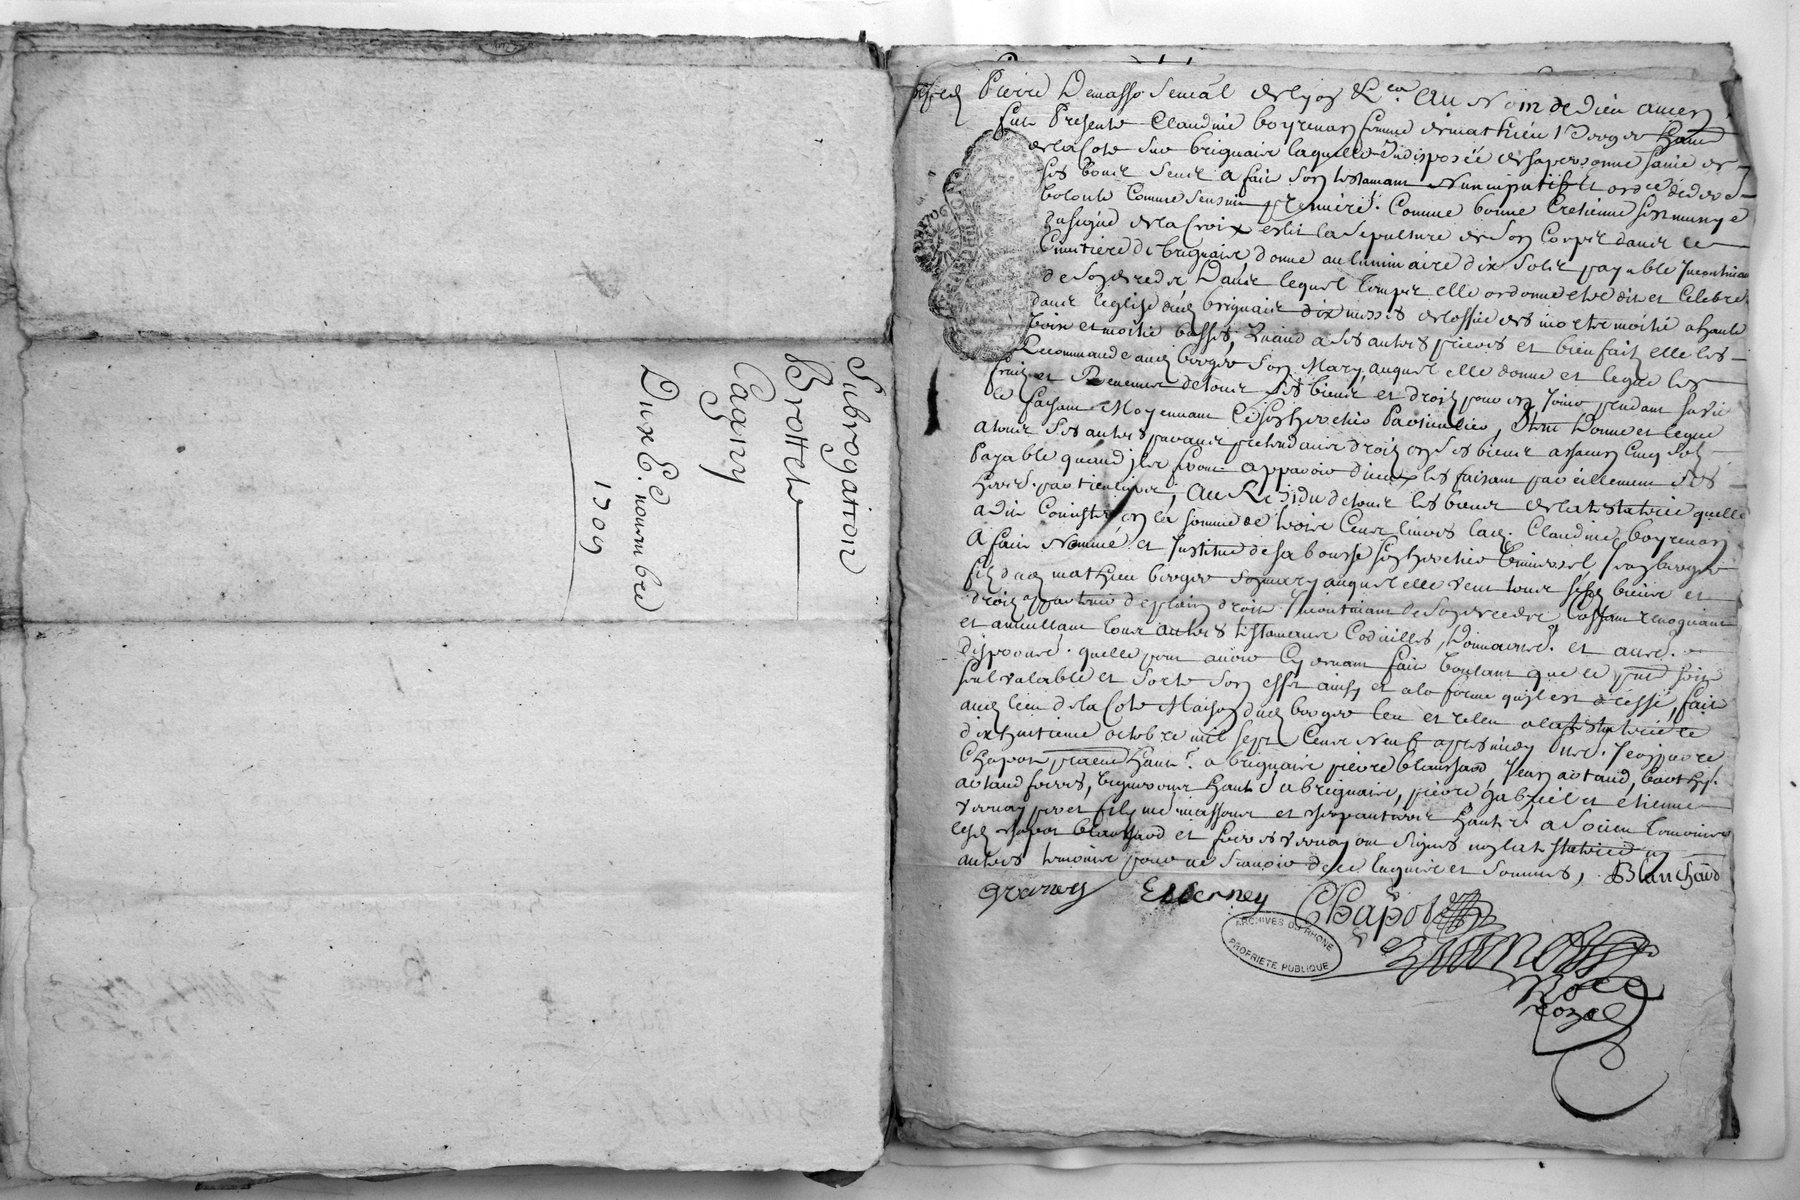 Subrogation
Brottete
Cagny
Dux E. nouembre
1709
Pierre Demasso Senéal de lyon &c.a Au Nom de Dieu amen
fut Presente Claudine boyrenon femme de mathieu Verger hant
de la Cote sur brignais laquelle Indisposée de sa personne saine de
ses bons sens a fait son testament Nuncupatif et ord.re de der.e
volonte Comme sensuit premiere.t Comme bonne Cretienne sest munye
du signe de la Croix eslit la sepulture de son Corps dans le
Cimitiere de brignais donne au luminaire dix Solz payable Incontinant
de son dexcedz Dans lequel temps elle ordonne estre dit et Celebré
dans leglise dud. brignais dix messes de loffice des mortz moitié a haute
Voix et moitié basses, Quand a ses autres prieres et bienfaitz elle les
Recommande aud. verger son Mary, auquel elle donne et legue les
fruitz et Revenus de tous ses biens et droitz pour en Jouir pendant sa vie
le faisant Moyennant Ce son heretier Particulier, Item Donne et legue
a tous ses autres parans pretendants droitz en ses biens a chacun Cinq solz
Payable quand ilz feront apparoir dieux les faisant pareillement ses
heres particuliers, Au Residu de tous les biens de la testatrice quelle
a dit Consister en la somme de trois Cens livres lad. Claudine boyrenon
A fait Nommé et Institué de sa bouche son heretier universel Jean verger
filz dud. mathieu verger son mary auquel elle veut tous sesd. biens et
droitz appartenir de plain droit Incontinant de son dexcedz Cassant revoquant
et annullant tous autres testamens Codicilles, Donnaons et autre
dispoons quelle pour auoir Cy deuant fait Voulant que le pnt soit
seul valable et sorte son effet ainsy et a la forme quil est dressé, fait
aud. lieu de la Cote Maison dud. verger leu et releu a la testatrice le
dix huitieme octobre mil sept Cens Neuf apres midy
Chapot praticien hant a brignais pierre blanchard, Jean artaud, barth.y
artaud freres, vignerons hant a brignais, pierre gabriel et étienne
vernay pere et filz me massons et charpantiers hant a Soucieu temoins
lesd. chapot blanchard et freres vernay ont signés non la testatrice ny
autres temoins pour ne scauoir de ce enquis et sommés, Blanchard
gvernay E vernay Chapot
ARCHIVES DU RHÔNE
PROPRIETE PUBLIQUE